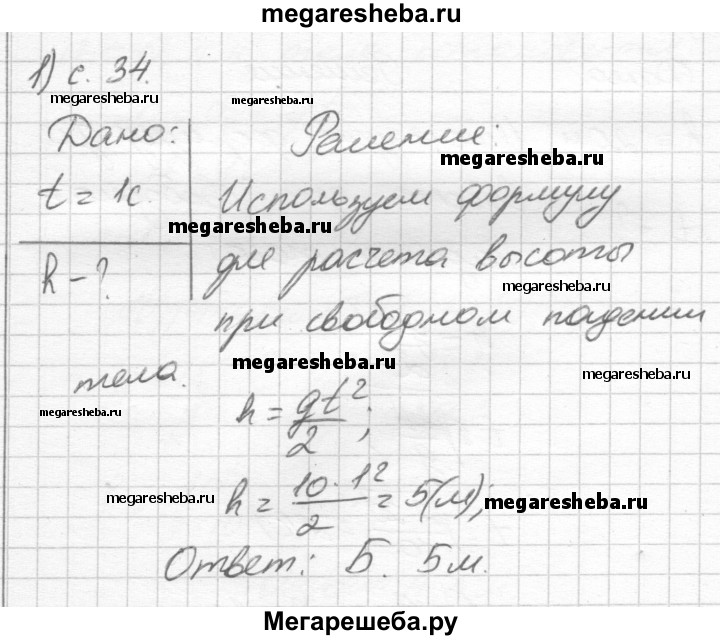 megaresheba.ru
1) с. 34.
megaresheba.ru megaresheba.ru
Дано: Решение:
megaresheba.ru
t = 1с. Используем формулу
megaresheba.ru
h - ? для расчета высоты
megaresheba.ru
при свободном падении
тела.
megaresheba.ru megaresheba.ru
megaresheba.ru
h = gt²/2;
megaresheba.ru h = 10·1²/2 = 5(м); megaresheba.ru
Ответ: Б. 5м.
Мегарешеба.ру